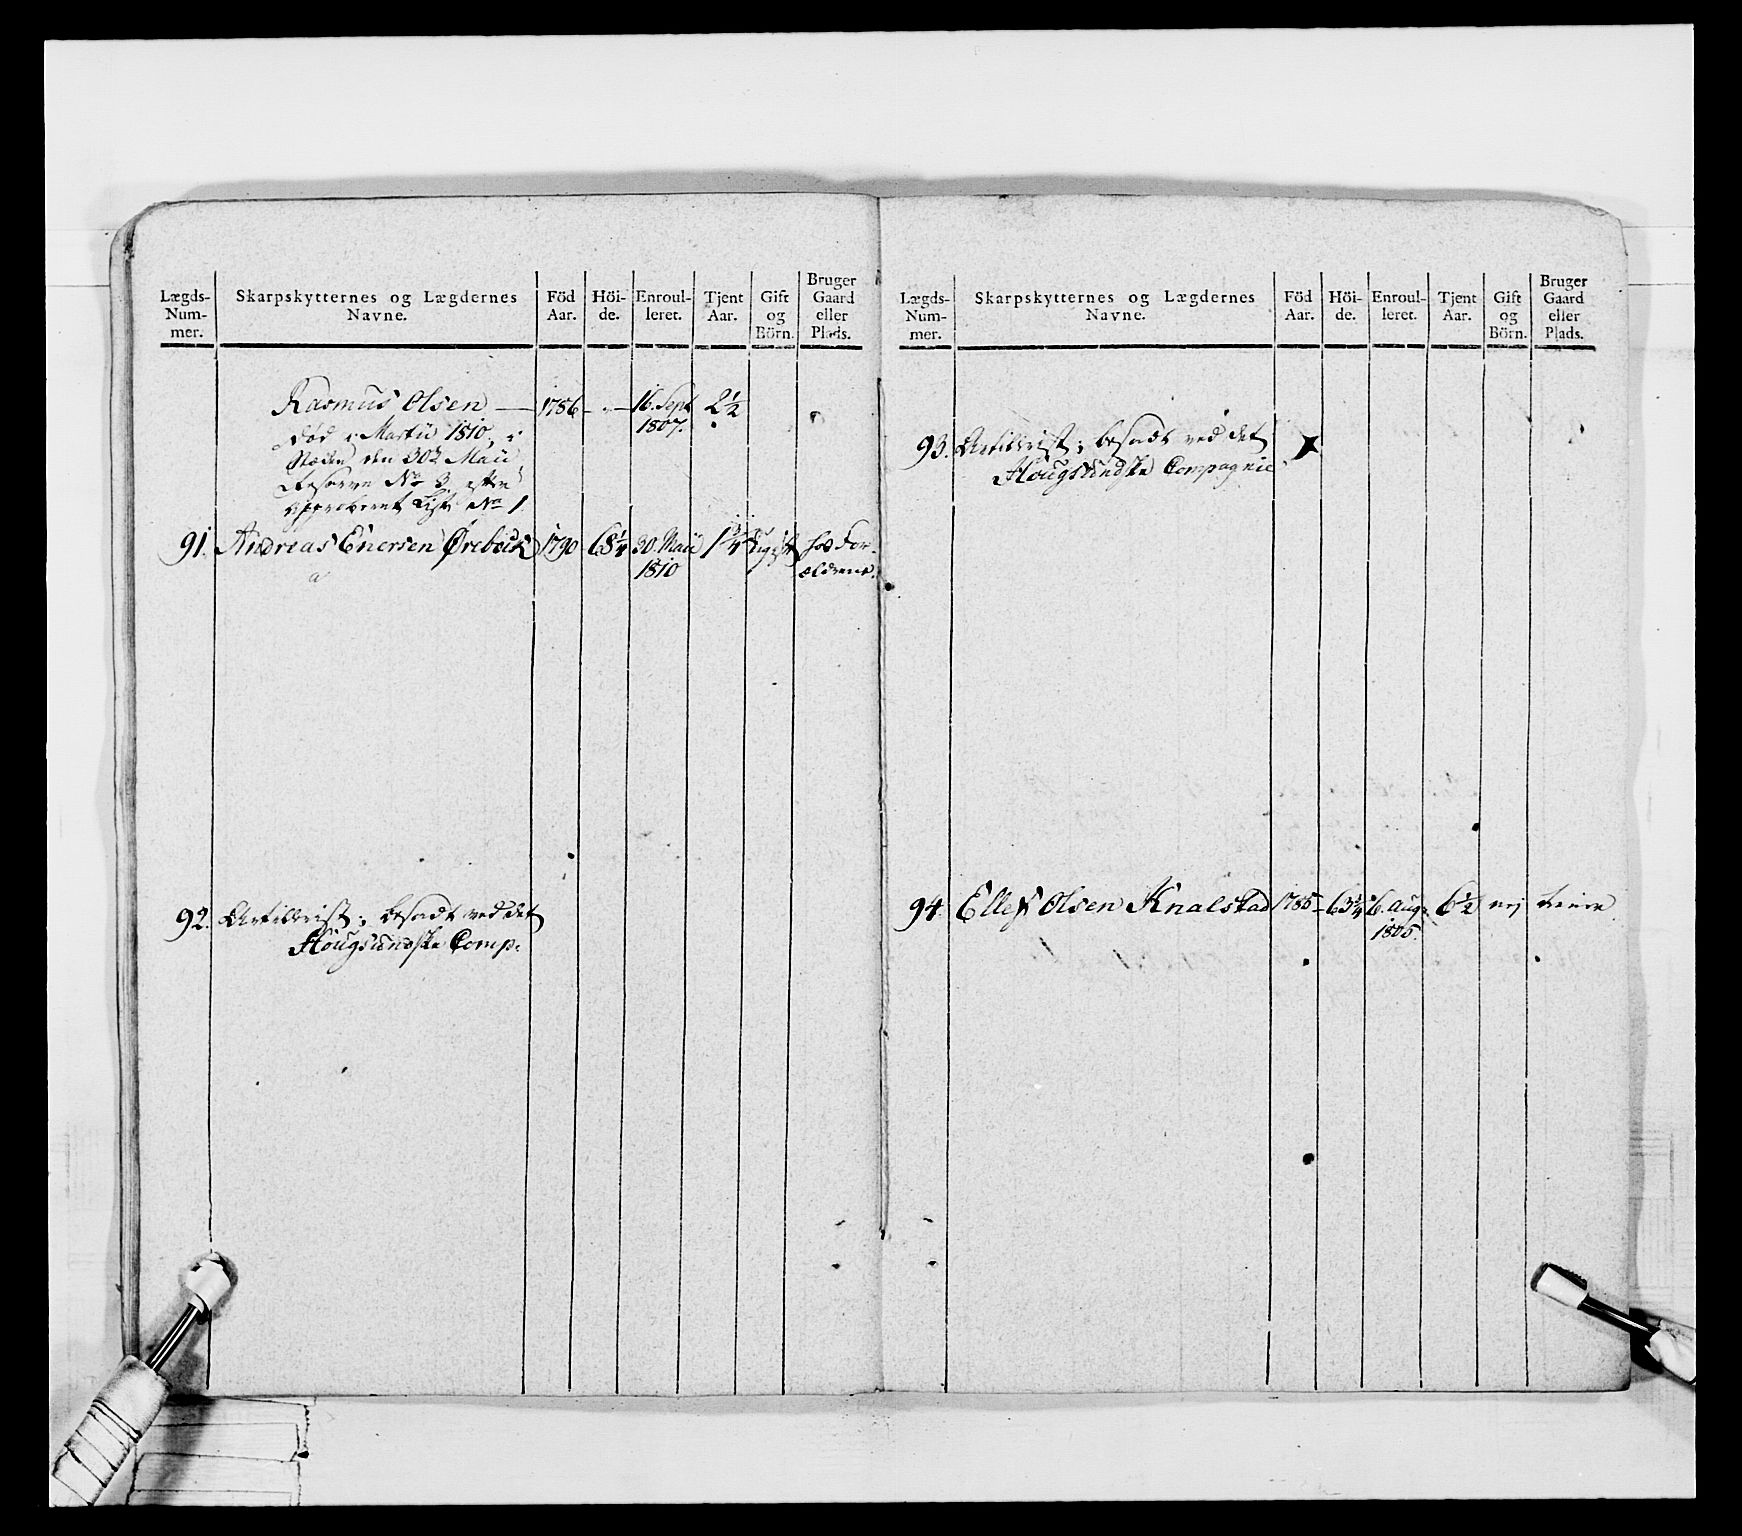 Lægds-
Num-
mer.
Skarpskytternes og Lægdernes
Navne.
Föd
Aar.
Höi-
de.
Enroul-
leret.
Tjent
Aar.
Gift
og
Börn.
Bruger
Gaard
eller
Plads.
Rasmus Olsen — 1786 - " - 16. Sept 2½
1807.
død i Martii 1810, i
den 30te Maii
Reserve No 3 efter
approberet List No 1
91. Andreas Enersen Örebech 1790 68¼ 30. Maii 1¾ ugift hos For-
1810 ældrene.
92. Artillerist; besadt ved det
Hougsundske Comp:
Lægds-
Num-
mer.
Skarpskytternes og Lægdernes
Navne.
Föd
Aar.
Höi-
de.
Enroul-
leret.
Tjent
Aar.
Gift
og
Börn.
Bruger
Gaard
eller
Plads.
93. Artillerist; besadt ved det
Hougsundske Compagnie
94. Ellef Olsen Knalstad 1785 63¼ 6. aug: 6½ nej tiener
1805.